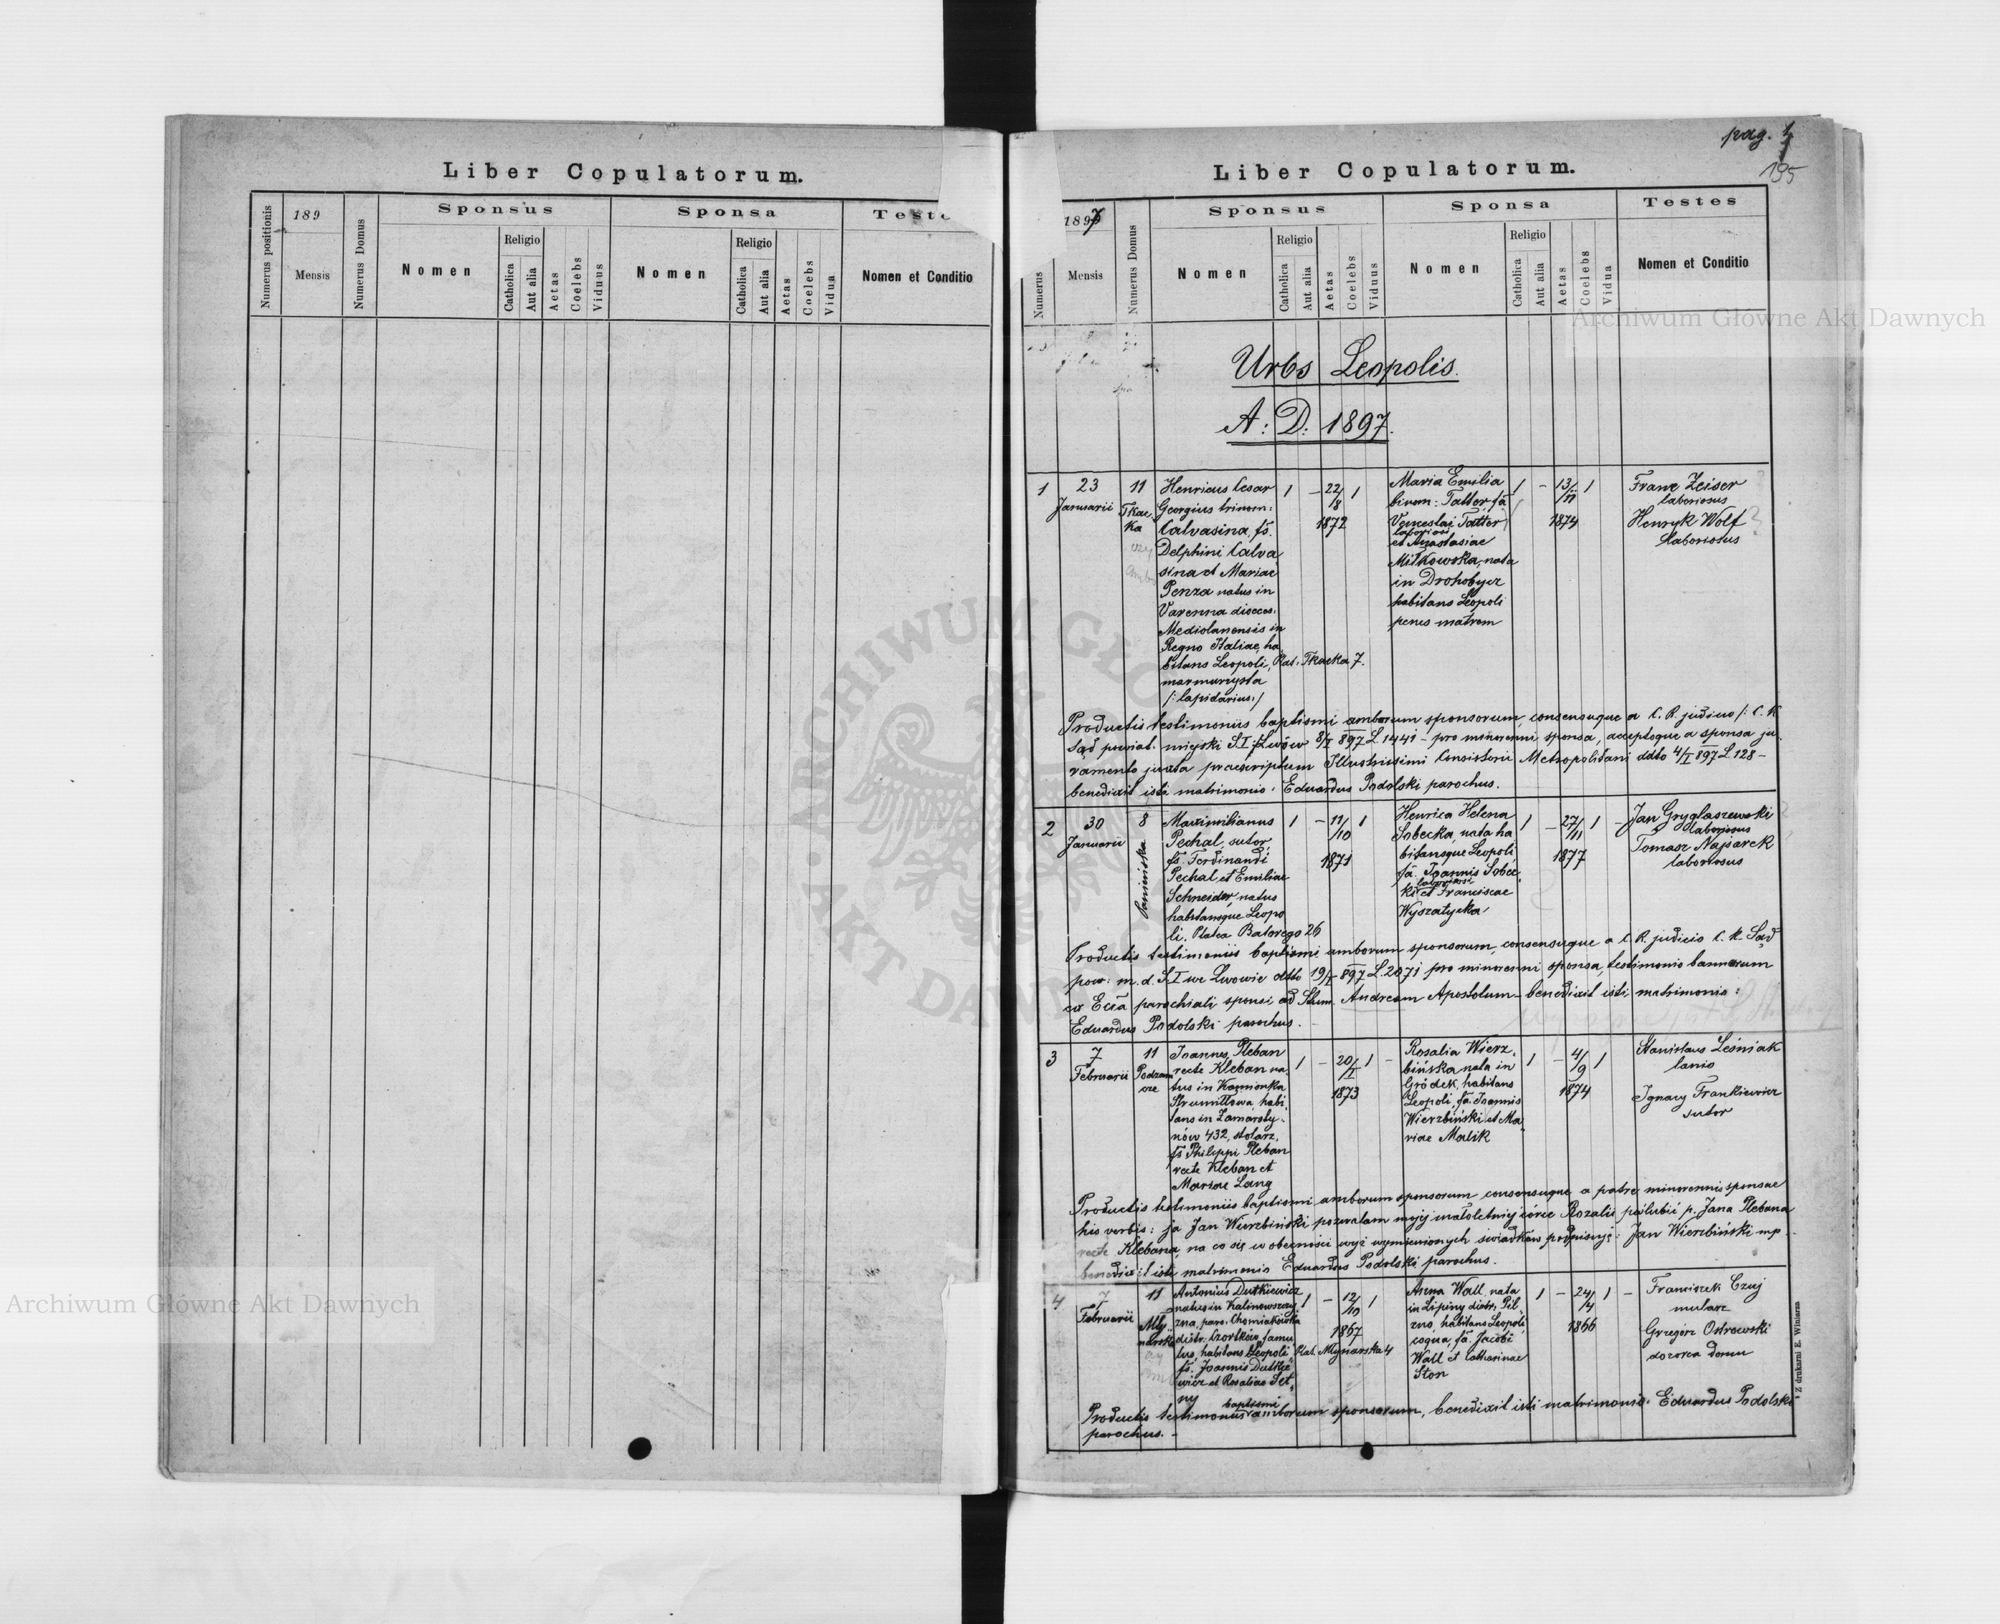 pag. 1
195
Liber Copulatorum.
Numerus positionis
189
Mensis
Numerus Domus
Sponsus
Nomen
Religio
Catholica
Aut alia
Aetas
Coelebs
Viduus
Sponsa
Nomen
Religio
Catholica
Aut alia
Aetas
Coelebs
Vidua
Nomen et Conditio
Liber Copulatorum.
Numerus
1897
Mensis
Numerus Domus
Sponsus
Nomen
Religio
Catholica
Aut alia
Aetas
Coelebs
Viduus
Sponsa
Nomen
Religio
Catholica
Aut alia
Aetas
Coelebs
Vidua
Testes
Nomen et Conditio
Urbs Leopolis.
A: D: 1897.
1
23
Januarii
11
Tkac
ka
Henricus Cesar
Georgius trinom:
Calvasina, fs.
Delphini Calva
sina et Mariae
Penza natus in
Varenna dioeces.
Mediolanensis in
Regno Italiae, ha
bitans Leopoli, Plat. Tkacka 7.
marmurzysta
/: lapidarius:/
1 – 22/8 1
1872
Maria Emilia
binom: Tatter fa
Venceslai Tatter
laboriosi
et Anastasiae
Mitkowska, nata
in Drohobycz
habitans Leopoli
penes matrem
1 – 13/11 1
1874
Franz Zeiser
laboriosus
Henryk Wolf
laboriosus
Productis testimoniis baptismi amborum sponsorum, consensuque a C. R. judicio /: C. K.
Sąd powiat. miejski S. I. Lwów 8/I 897 L. 1441 – pro minorenni sponsa, acceptoque a sponsa ju
ramento juxta praescriptum Illustrissimi Consistorii Metropolitani ddto 4/I 897 L. 128 –
benedixit isti matrimonio: Eduardus Podolski parochus.
2
30
Januarii
8
Maximilianus
Pechal, sutor,
fs. Ferdinandi
Pechal et Emiliae
Schneider, natus
habitansque Leopo
li, Platea Batorego 26
1 – 11/10 1
1871
Henrica Helena
Sobecka, nata ha
bitansque Leopoli
fa. Joannis Sobec
laboriosi
ki et Franciscae
Wyszatycka
1 – 27/11 1 –
1877
Jan Gryglaszewski
laboriosus
Tomasz Najsarek
laboriosus
Productis testimoniis baptismi amborum sponsorum, consensuque a C. R. judicio C. K. Sąd
pow: m. d. S. I we Lwowie ddto 19/I 897 L. 2071 pro minorenni sponsa, testimonio bannorum
ex Eccla parochiali sponsi ad Stum. Andream Apostolum – benedixit isti matrimonio:
Eduardus Podolski parochus. –
3
7
Februarii
11
Podzam
cze
Joannes Pleban
recte Kleban na
tus in Kamionka
Strumiłłowa, habi
tans in Zamarsty
nów 432, stolarz,
fs Philippi Pleban
recte Kleban et
Mariae Lang
1 – 20/I 1 –
1873
Rosalia Wierz
bińska nata in
Gródek, habitans
Leopoli, fa. Joannis
Wierzbiński et Ma
riae Malik
1 – 4/9 1
1874
Stanislaus Leśniak
lanio
Ignacy Frankiewicz
sutor
Productis testimoniis baptismi amborum sponsorum, consensuque a patre minorennis sponsae
his verbis: ja Jan Wierzbiński pozwalam mojej małoletniej córce Rozalii poślubić p. Jana Plebana
recte Klebana, na co się w obecności wyż wymienionych świadków podpisuję: Jan Wierzbiński mp.
benedixit isti matrimonio Eduardus Podolski parochus.
4
7
Februarii
11
Mły
narska
Antonius Dutkiewicz
natus in Kalinowszczy
zna, paro. Chomiakówka
distr. Czortków, famu
lus, habitans Leopoli Plat. Młynarska 4
fs. Joannis Dutkie
wicz et Rosaliae Set
ny
1 – 12/10 1
1867
Anna Wall, nata
in Lipiny distr. Pil
zno, habitans Leopoli
coqua, fa. Jacobi
Wall et Catharinae
Ston
1 – 24/4 1 –
1866
Franciszek Czuj
mularz
Grzegórz Ostrowski
dozorca domu
baptismi
Productis testimoniis amborum sponsorum, benedixit isti matrimonio. Eduardus Podolski
parochus. –
Z drukarni E. Winiarza
Archiwum Główne Akt Dawnych
Archiwum Główne Akt Dawnych
ARCHIWUM GŁÓWNE AKT DAWNYCH